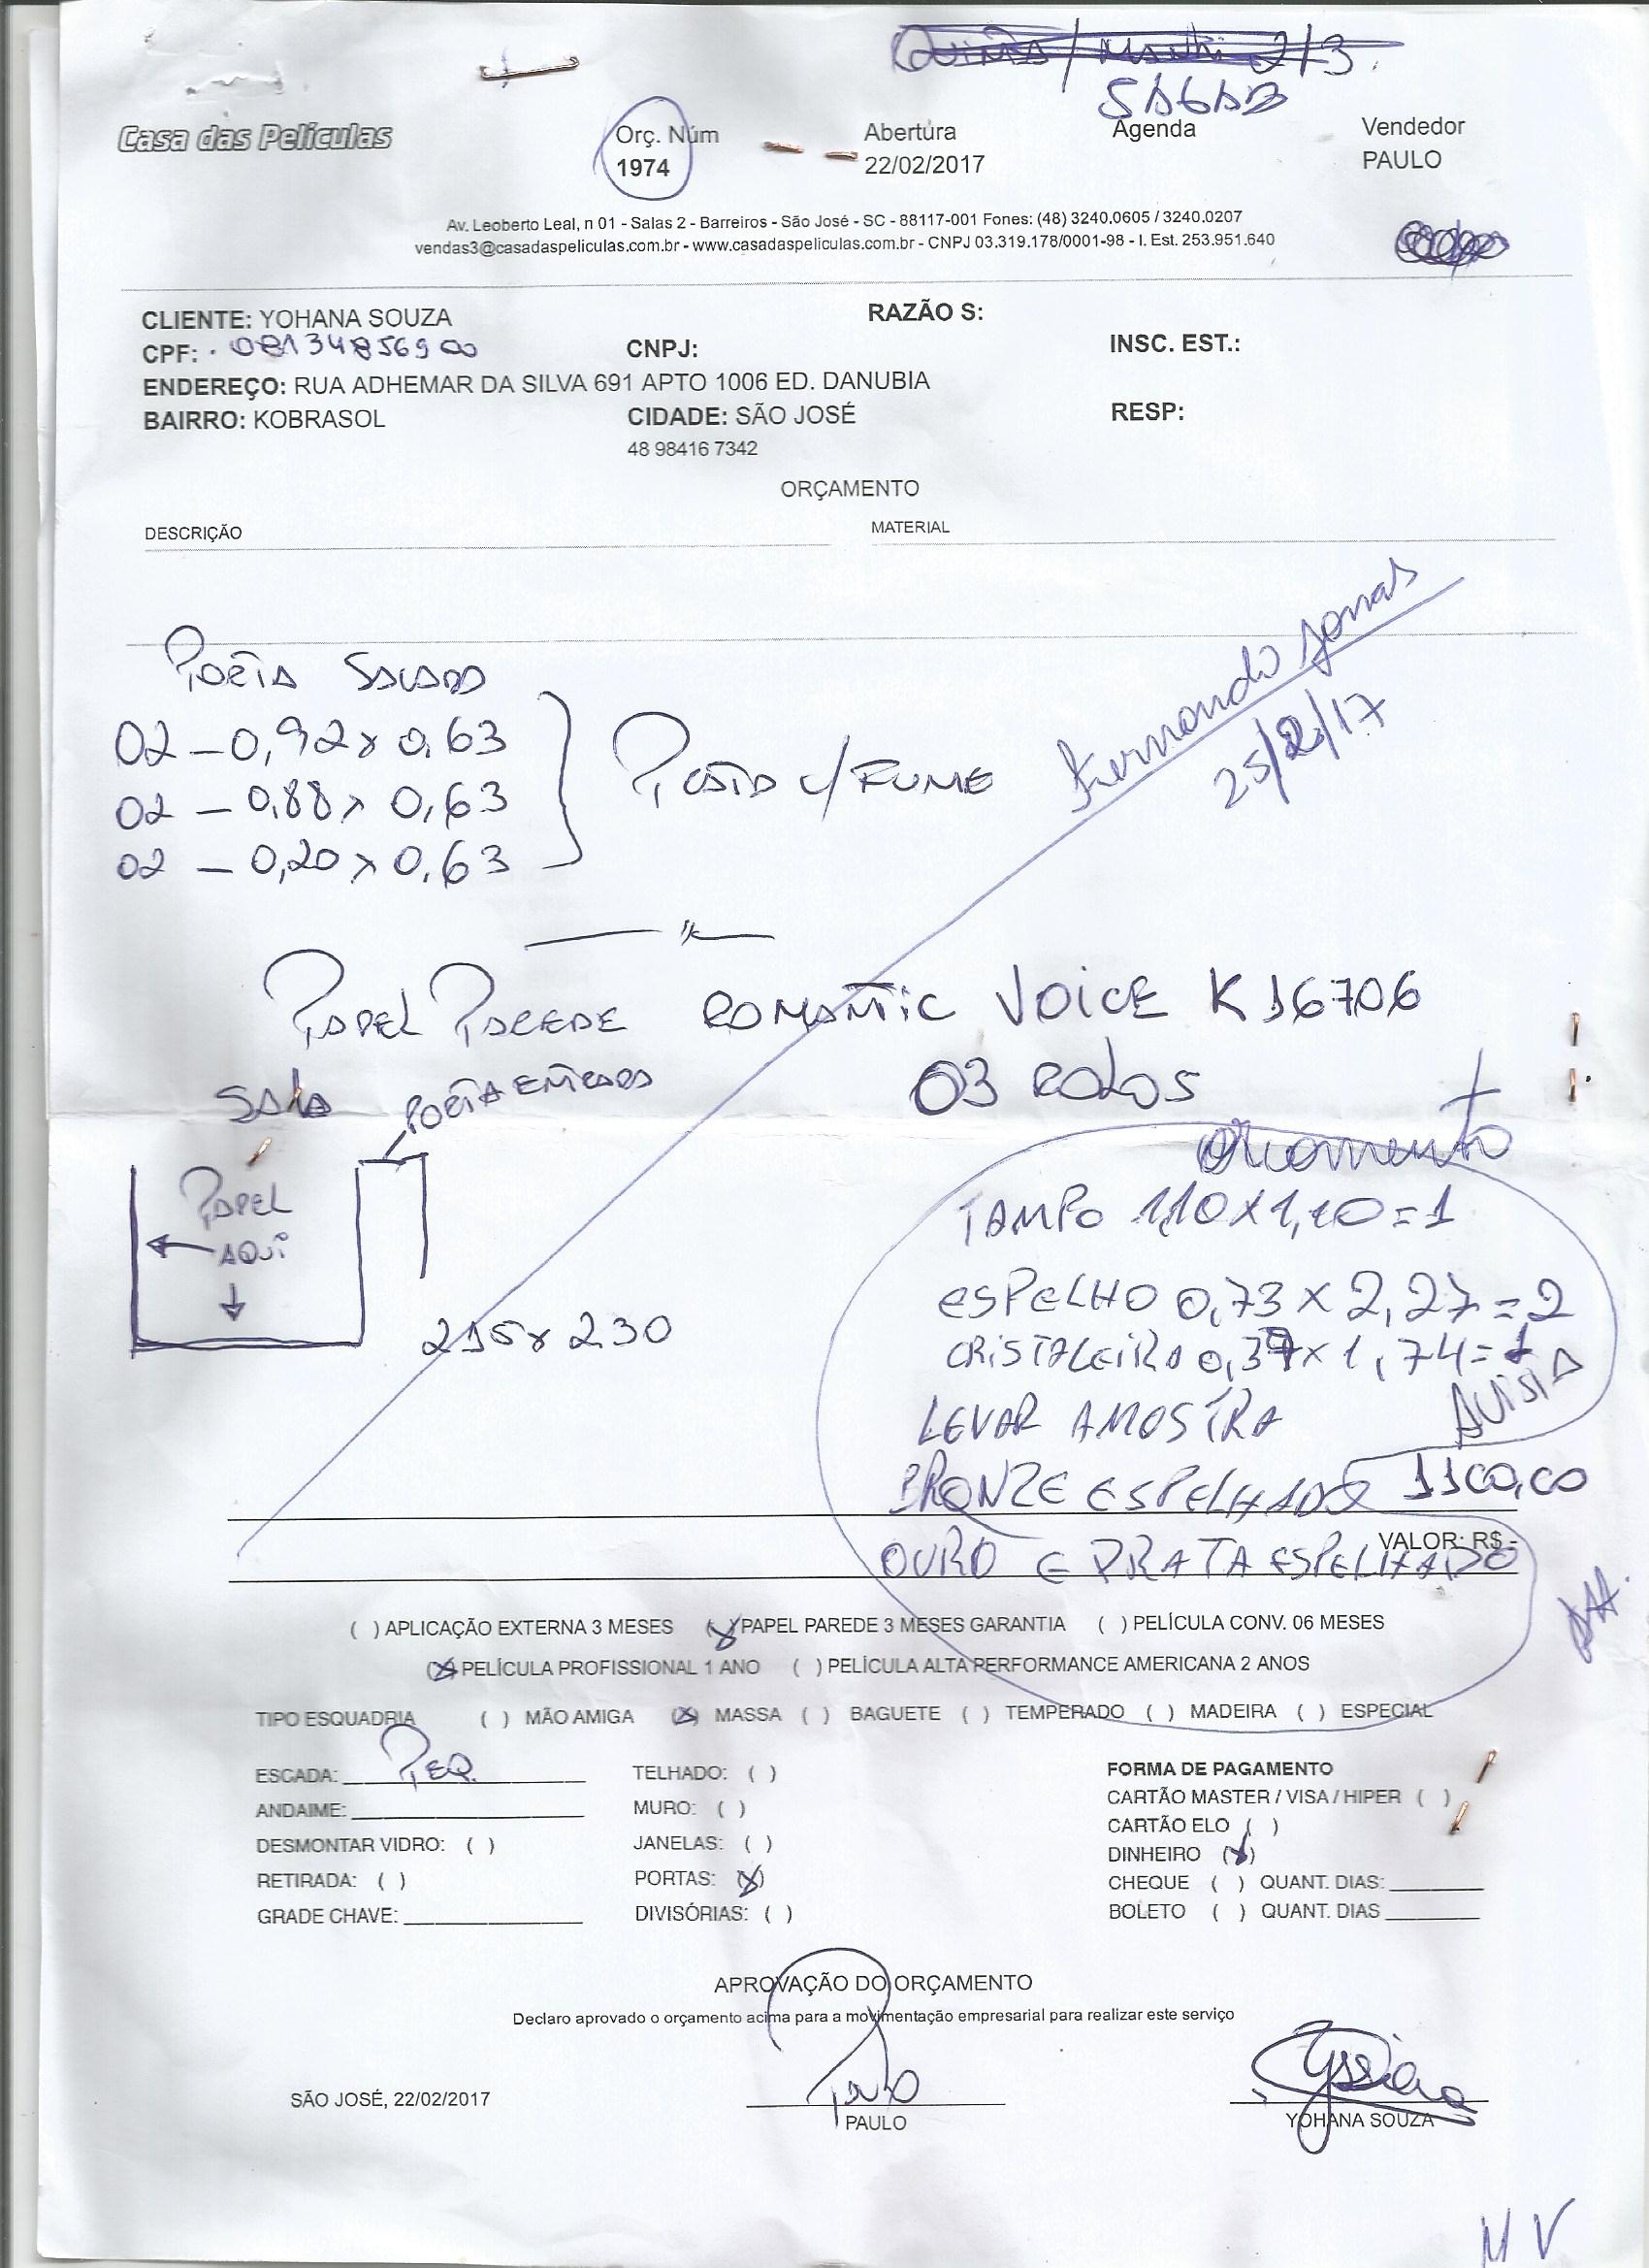 2/3.
SABADO
Casa das Películas
Orç. Núm
1974
Abertura
22/02/2017
Agenda
Vendedor
PAULO
Av. Leoberto Leal, n 01 - Salas 2 - Barreiros - São José - SC - 88117-001 Fones: (48) 3240.0605 / 3240.0207
vendas3@casadaspeliculas.com.br - www.casadaspeliculas.com.br - CNPJ 03.319.178/0001-98 - I. Est. 253.951.640
CLIENTE: YOHANA SOUZA
RAZÃO S:
CPF: 08134856900
CNPJ:
INSC. EST.:
ENDEREÇO: RUA ADHEMAR DA SILVA 691 APTO 1006 ED. DANUBIA
BAIRRO: KOBRASOL
CIDADE: SÃO JOSÉ
RESP:
48 98416 7342
ORÇAMENTO
DESCRIÇÃO
MATERIAL
PORTA SACADA
02 - 0,92 x 0,63
02 - 0,88 x 0,63
02 - 0,20 x 0,63
C/FUME
Fernando Jonas
25/2/17
PAPEL PAREDE ROMANTIC VOICE K16706
03 ROLOS
SALA
PORTA ENTRADA
PAPEL
AQUI
215x230
Orcamento
TAMPO 1,10X1,10=1
ESPELHO 0,73 X 2,27=2
CRISTALEIRA 0,37x1,74=1
LEVAR AMOSTRA
AVISTA
BRONZE ESPELHADO
1100,00
VALOR: R$ -
OURO E PRATA ESPELHADO
( ) APLICAÇÃO EXTERNA 3 MESES (X) PAPEL PAREDE 3 MESES GARANTIA ( ) PELÍCULA CONV. 06 MESES
(X) PELÍCULA PROFISSIONAL 1 ANO ( ) PELÍCULA ALTA PERFORMANCE AMERICANA 2 ANOS
TIPO ESQUADRIA ( ) MÃO AMIGA (X) MASSA ( ) BAGUETE ( ) TEMPERADO ( ) MADEIRA ( ) ESPECIAL
ESCADA: PEQ.
TELHADO: ( )
FORMA DE PAGAMENTO
ANDAIME:
MURO: ( )
CARTÃO MASTER / VISA / HIPER ( )
CARTÃO ELO ( )
DESMONTAR VIDRO: ( )
JANELAS: ( )
DINHEIRO (X)
RETIRADA: ( )
PORTAS: (X)
CHEQUE ( ) QUANT. DIAS:
GRADE CHAVE:
DIVISÓRIAS: ( )
BOLETO ( ) QUANT. DIAS
APROVAÇÃO DO ORÇAMENTO
Declaro aprovado o orçamento acima para a movimentação empresarial para realizar este serviço
SÃO JOSÉ, 22/02/2017
Paulo
PAULO
YOHANA SOUZA
M V